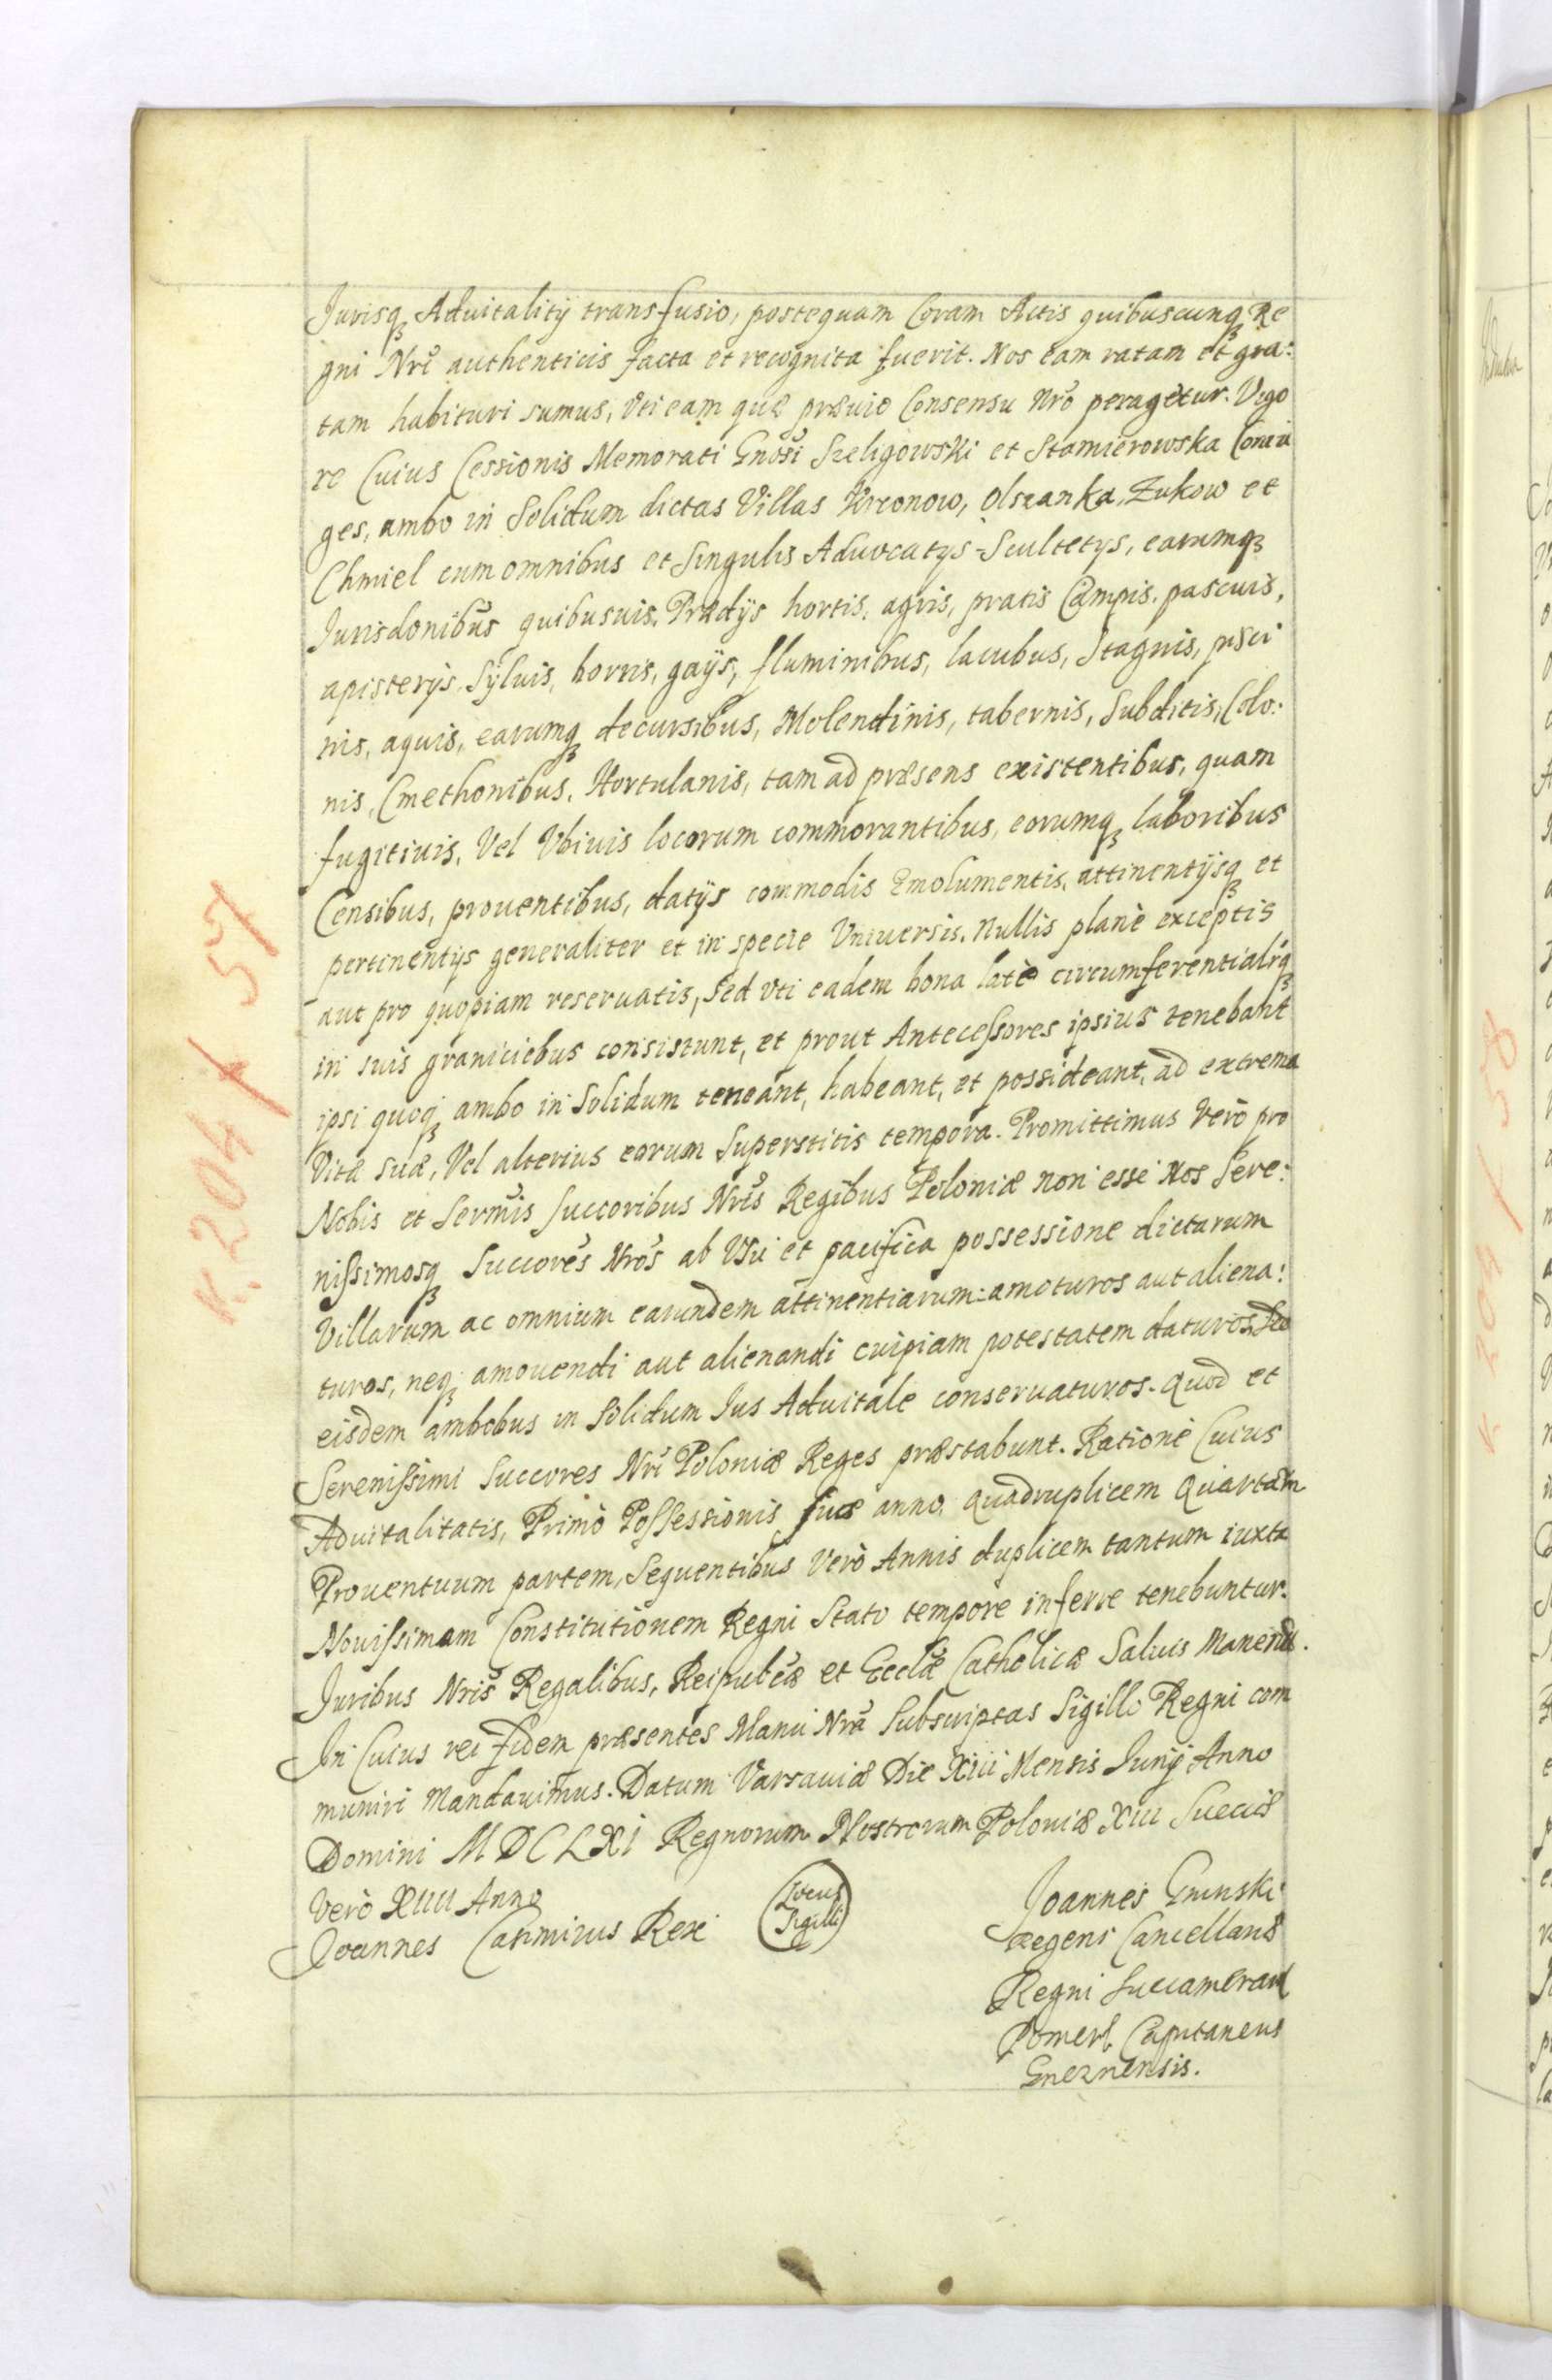 Jurisq3 Aduitalitÿ transfusio, postequam Coram Actis quibuscunq3 Re
gni Nri authenticis facta et recognita fuerit. Nos eam ratam et gra:
tam habituri sumus, Vti eam quæ præuio Consensu Nro peragetur. Vigo
re Cuius Cessionis Memorati Gnosi Szeligowski et Stamierowska Coniu
ges, ambo in Solidum dictas Villas Krconow, Olszanka, Zukow et
Chmiel cum omnibus et Singulis Aduocatÿs Scultetÿs, earumq3
Jurisdonibus quibusuis. Prædÿs hortis, agris, pratis Campis, pascuis,
apisterÿs, Syluis, borris, gaÿs, fluminibus, lacubus, Stagnis, pisci
nis, aquis, earumq3 decursibus, Molendinis, tabernis, Subditis, Colo:
nis, Cmethonibus, Hortulanis, tam ad præsens existentibus, quam
fugitiuis, Vel Vbiuis locorum commorantibus, eorumq3 laboribus
Censibus, prouentibus, datÿs commodis Emolumentis, attinentÿsq3 et
pertinentÿs generaliter et in specie Vniuersis. Nullis planè exceptis
aut pro quopiam reseruatis, Sed vti eadem bona latè circumferentialrq3
in suis graniciebus consistunt, et prout Antecessores ipsius tenebant
ipsi quoq3 ambo in Solidum teneant, habeant, et possideant, ad extrema
Vitæ suæ, Vel alterius eorum Superstitis tempora. Promittimus Verò pro
Nobis et Sermis Succoribus Nris Regibus Poloniæ non esse Nos Sere:
nissimosq3 Succores Nros ab Vsu et pacifica possessione dictarum
Villarum ac omnium earundem attinentiarum amoturos aut aliena:
turos, neq3 amouendi aut alienandi cuipiam potestatem daturos, Sed
eisdem ambobus in Solidum Ius Aduitale conseruaturos. Quod et
Serenissimi Succores Nri Poloniæ Reges præstabunt. Ratione Cuius
Aduitalitatis, Primò Possessionis suæ anno, quadruplicem Quartam
Prouentuum partem, Sequentibus Verò Annis duplicem tantum iuxta
Nouissimam Constitutionem Regni Stato tempore inferre tenebuntur.
Juribus Nris Regalibus, Reipubcæ et Ecclæ Catholicæ Saluis Manend.
In Cuius rei fidem præsentes Manu Nra Subscriptas Sigillo Regni com
muniri Mandauimus. Datum Varsauiæ Die XIII Mensis Junÿ Anno
Domini MDCLXI Regnorum Nostrorum Poloniæ XIII Sueciæ
Verò XIIII Anno
Joannes Casimirus Rex
(Locus
Sigilli)
Joannes Gninski
Regens Cancellariæ
Regni Succamerari
Pomerl. Capitaneus
Gneznensis.
K. 204 / 57
K 205 / 58